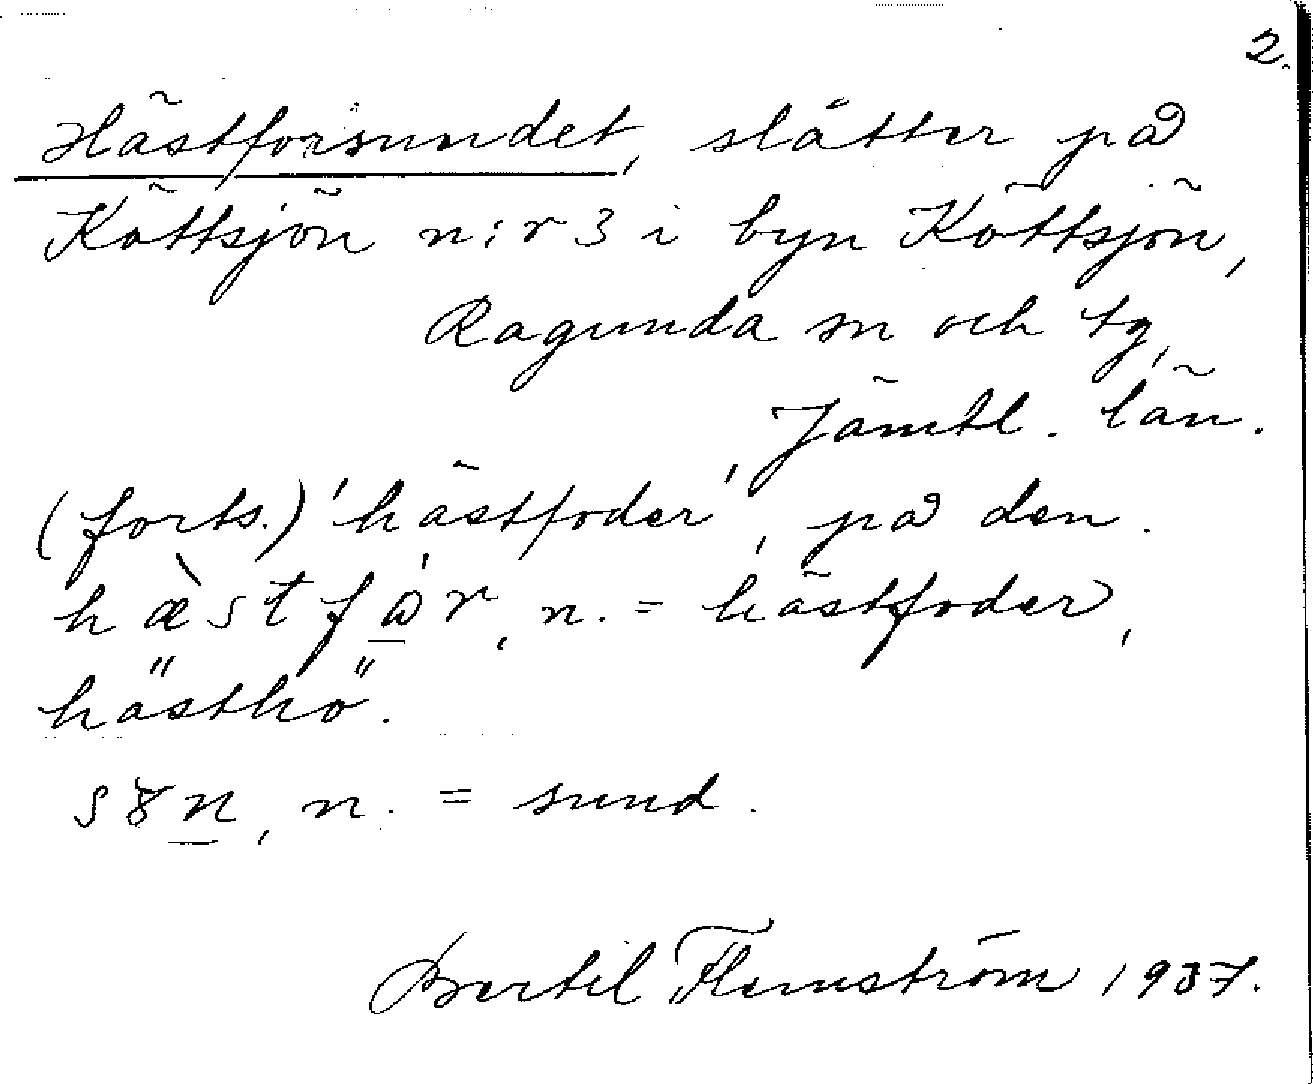 2.
Hästforsundet, slåtter på
Köttsjön n:r 3 i byn Köttsjön,
Ragunda sn och tg,
Jämtl. län.
(forts.) 'hästfoder', på den.
hæ̀stfår, n. = hästfoder,
hästhö.
n. = sund.
Bertil Flemström 1937.